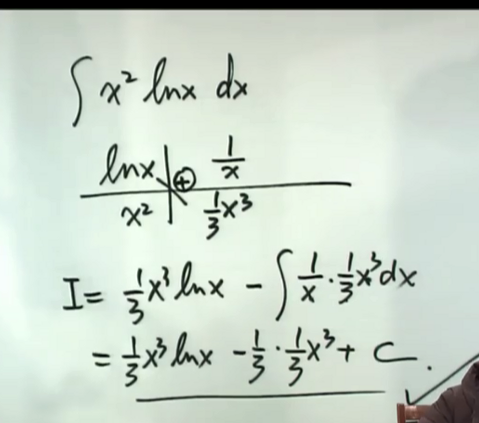 ∫ x² lnx dx
lnx | ⊕ 1/x
x² | 1/3 x³
I = 1/3 x³ lnx − ∫ 1/x · 1/3 x³ dx
= 1/3 x³ lnx − 1/3 · 1/3 x³ + C.